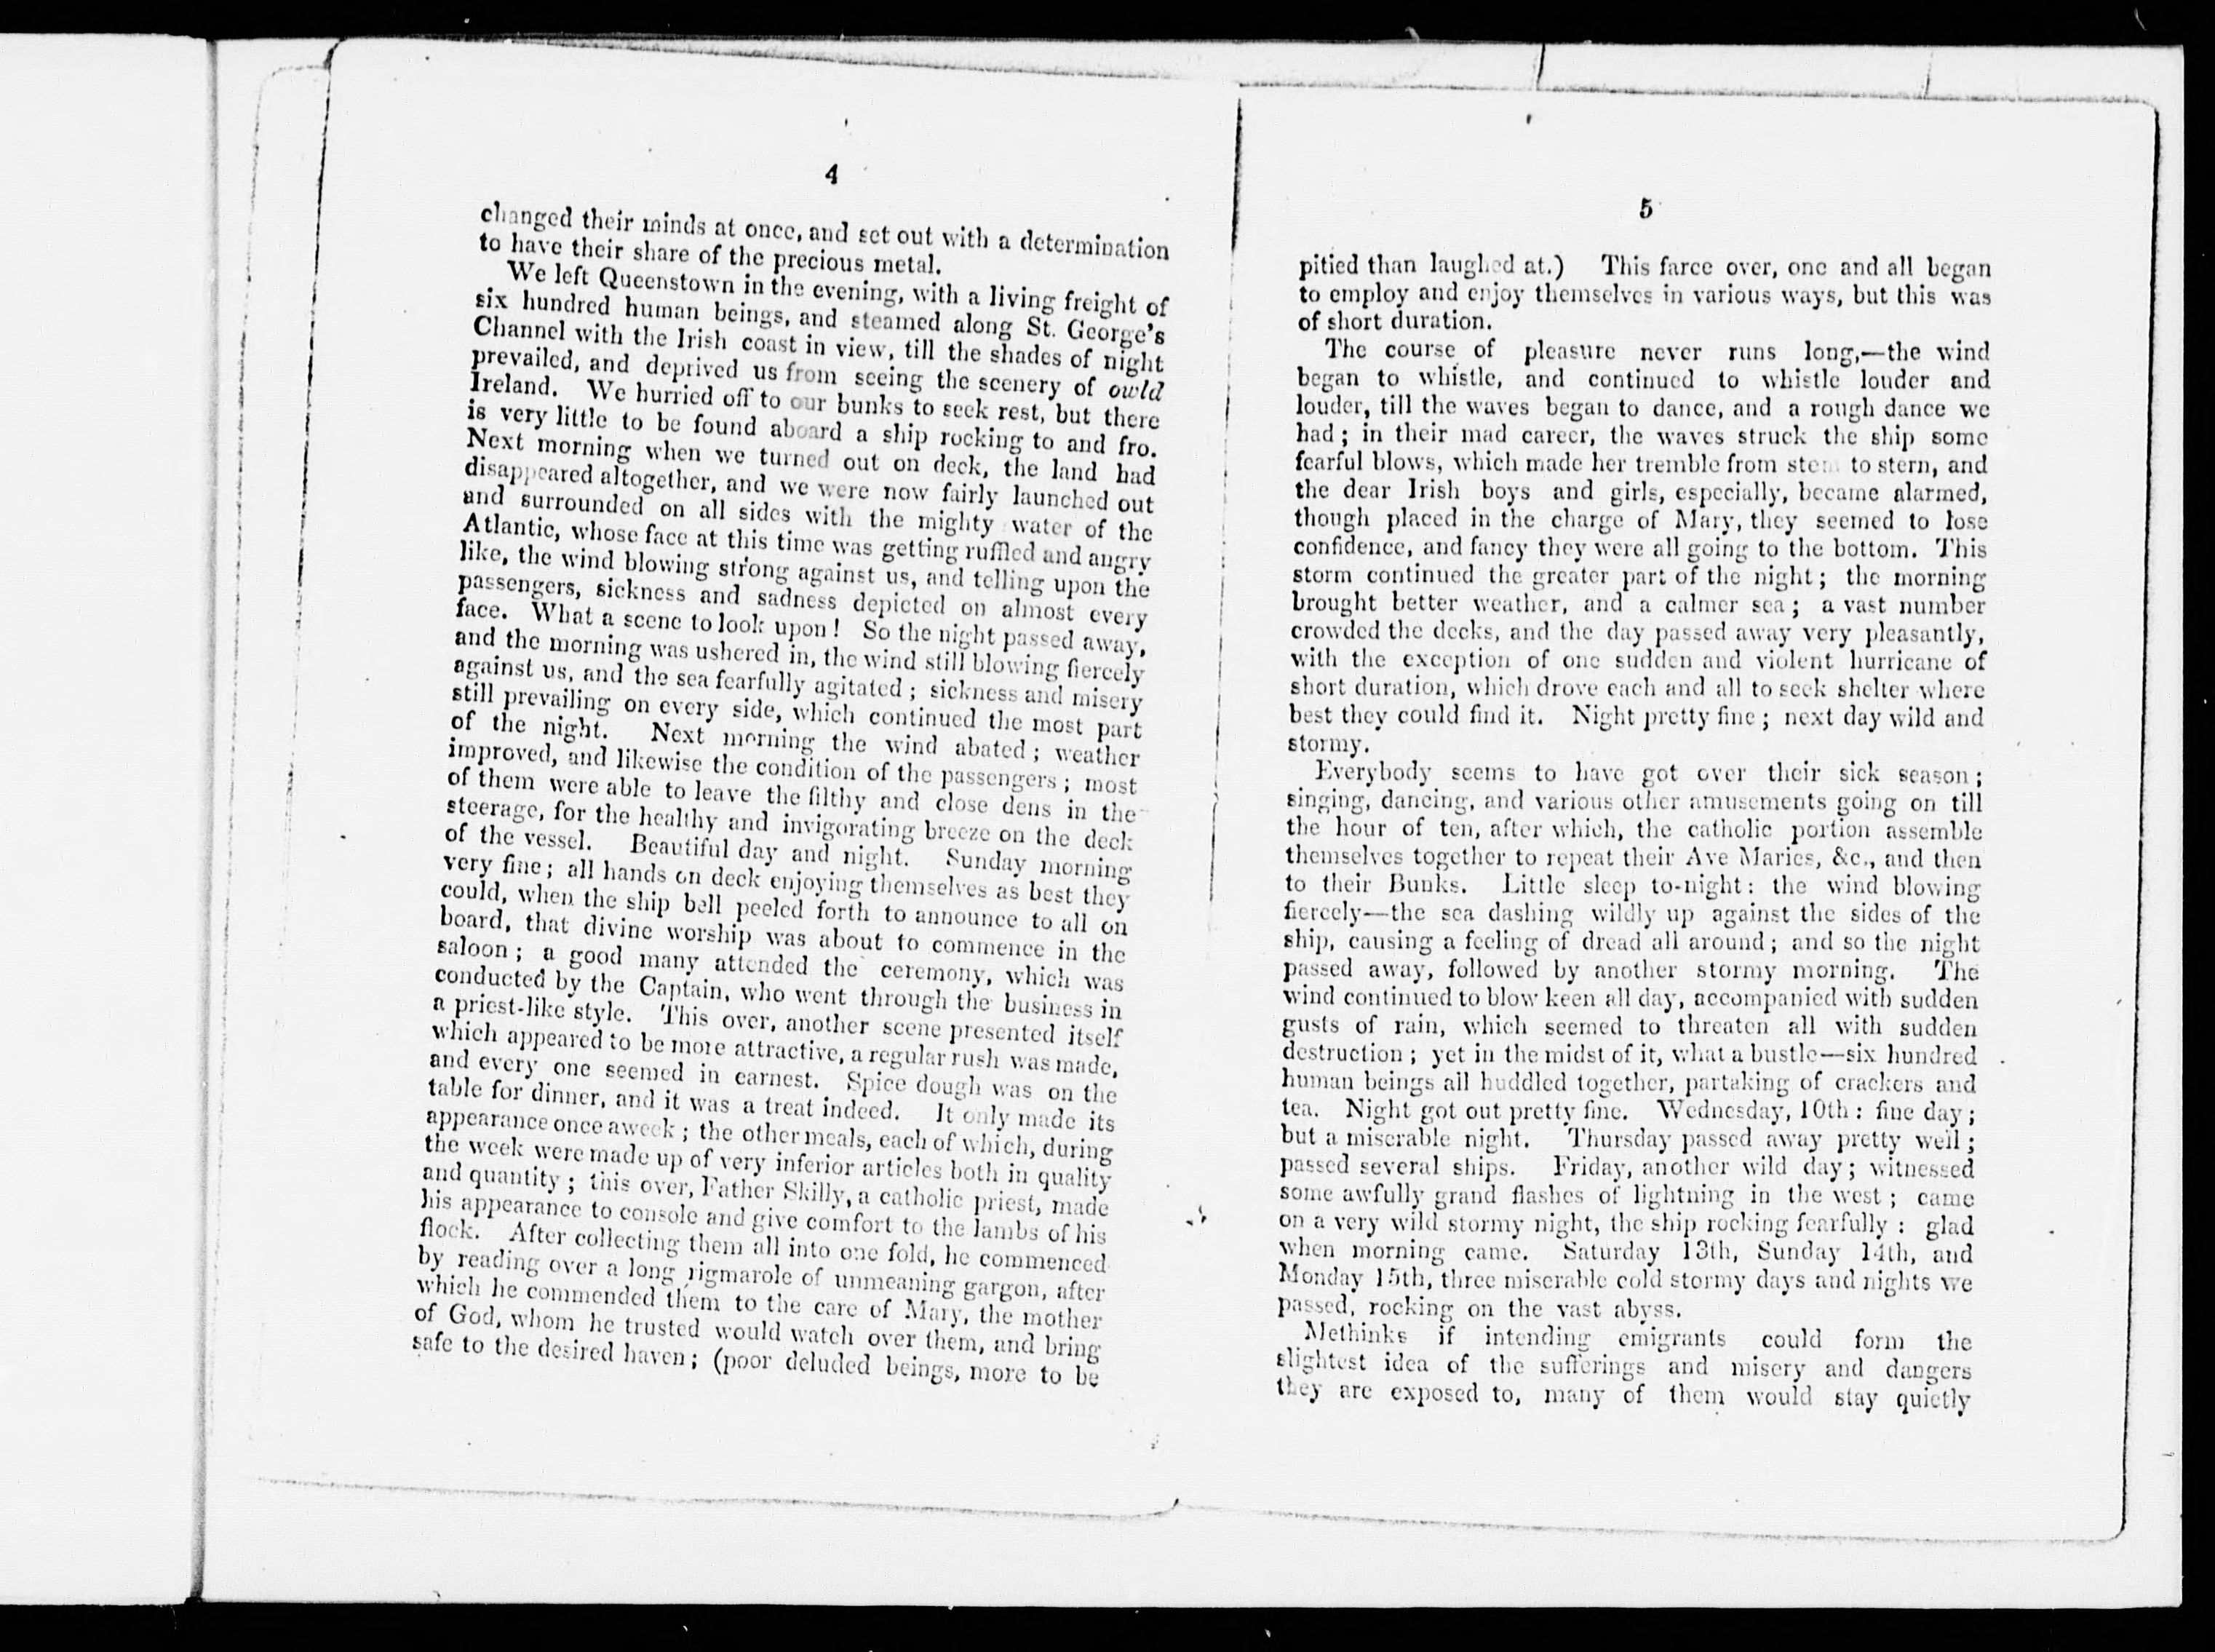 4
changed their minds at once, and set out with a determination
to have their share of the precious metal.
We left Queenstown in the evening, with a living freight of
six hundred human beings, and steamed along St. George's
Channel with the Irish coast in view, till the shades of night
prevailed, and deprived us from seeing the scenery of owld
Ireland. We hurried off to our bunks to seek rest, but there
is very little to be found aboard a ship rocking to and fro.
Next morning when we turned out on deck, the land had
disappeared altogether, and we were now fairly launched out
and surrounded on all sides with the mighty water of the
Atlantic, whose face at this time was getting ruffled and angry
like, the wind blowing strong against us, and telling upon the
passengers, sickness and sadness depicted on almost every
face. What a scene to look upon! So the night passed away,
and the morning was ushered in, the wind still blowing fiercely
against us, and the sea fearfully agitated; sickness and misery
still prevailing on every side, which continued the most part
of the night. Next morning the wind abated; weather
improved, and likewise the condition of the passengers; most
of them were able to leave the filthy and close dens in the
steerage, for the healthy and invigorating breeze on the deck
of the vessel. Beautiful day and night. Sunday morning
very fine; all hands on deck enjoying themselves as best they
could, when the ship bell peeled forth to announce to all on
board, that divine worship was about to commence in the
saloon; a good many attended the ceremony, which was
conducted by the Captain, who went through the business in
a priest-like style. This over, another scene presented itself
which appeared to be more attractive, a regular rush was made,
and every one seemed in earnest. Spice dough was on the
table for dinner, and it was a treat indeed. It only made its
appearance once aweek; the other meals, each of which, during
the week were made up of very inferior articles both in quality
and quantity; this over, Father Skilly, a catholic priest, made
his appearance to console and give comfort to the lambs of his
flock. After collecting them all into one fold, he commenced
by reading over a long rigmarole of unmeaning gargon, after
which he commended them to the care of Mary, the mother
of God, whom he trusted would watch over them, and bring
safe to the desired haven; (poor deluded beings, more to be
5
pitied than laughed at.) This farce over, one and all began
to employ and enjoy themselves in various ways, but this was
of short duration.
The course of pleasure never runs long,—the wind
began to whistle, and continued to whistle louder and
louder, till the waves began to dance, and a rough dance we
had; in their mad career, the waves struck the ship some
fearful blows, which made her tremble from stem to stern, and
the dear Irish boys and girls, especially, became alarmed,
though placed in the charge of Mary, they seemed to lose
confidence, and fancy they were all going to the bottom. This
storm continued the greater part of the night; the morning
brought better weather, and a calmer sea; a vast number
crowded the decks, and the day passed away very pleasantly,
with the exception of one sudden and violent hurricane of
short duration, which drove each and all to seek shelter where
best they could find it. Night pretty fine; next day wild and
stormy.
Everybody seems to have got over their sick season;
singing, dancing, and various other amusements going on till
the hour of ten, after which, the catholic portion assemble
themselves together to repeat their Ave Maries, &c., and then
to their Bunks. Little sleep to-night: the wind blowing
fiercely—the sea dashing wildly up against the sides of the
ship, causing a feeling of dread all around; and so the night
passed away, followed by another stormy morning. The
wind continued to blow keen all day, accompanied with sudden
gusts of rain, which seemed to threaten all with sudden
destruction; yet in the midst of it, what a bustle—six hundred
human beings all huddled together, partaking of crackers and
tea. Night got out pretty fine. Wednesday, 10th: fine day;
but a miserable night. Thursday passed away pretty well;
passed several ships. Friday, another wild day; witnessed
some awfully grand flashes of lightning in the west; came
on a very wild stormy night, the ship rocking fearfully: glad
when morning came. Saturday 13th, Sunday 14th, and
Monday 15th, three miserable cold stormy days and nights we
passed, rocking on the vast abyss.
Methinks if intending emigrants could form the
slightest idea of the sufferings and misery and dangers
they are exposed to, many of them would stay quietly